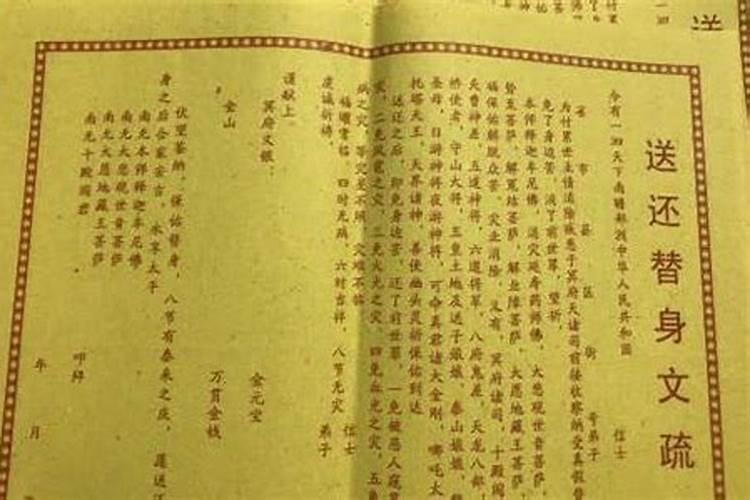 送还替身文疏
今有一四天下南赡部洲中华人民共和国
省 市 县 区 街 号弟子 信士
为付累世主债消除疾患于冥府天诸司前接收察纳受真假替
免了身边苦，消了前世罪，望祈
本师释迦牟尼佛，消灾延寿药师佛，大悲观世音菩萨
势至菩萨，解冤结菩萨，解业障菩萨，大愿地藏王菩萨，
福保佑解脱众苦，灾业消除，又有，冥府诸司，十殿阎
天曹神差，五道神将，六道将军，八府鬼差，天龙八部，
桥使者，守山大将，五皇土地及送子娘娘，泰山娘娘，
圣母，日游神将夜游神将，可命真君诸大金刚，哪吒太
托塔天王，天界诸神，善使幽头灵祈保佑到达
送还之后，即免身边苦，还了前世罪，一免被恶人寇
灾，二免风雹之灾，三免火光之灾，四免血光之灾，五鱼
病之灾，等灾是不照，灾难不临
福曜常临，四时无病，六时吉祥，八节无灾 信士
虔诚祈祷， 弟子
谨献上
冥府文银： 金元宝
金山 万贯金钱
伏望鉴纳，保佑替身，八节有泰来之庆，愿送
身之后合家安吉，永享太平
南无本师释迦牟尼佛
南无大悲观世音菩萨
南无大愿地藏王菩萨
南无十殿阎君
叩拜
年 月
送